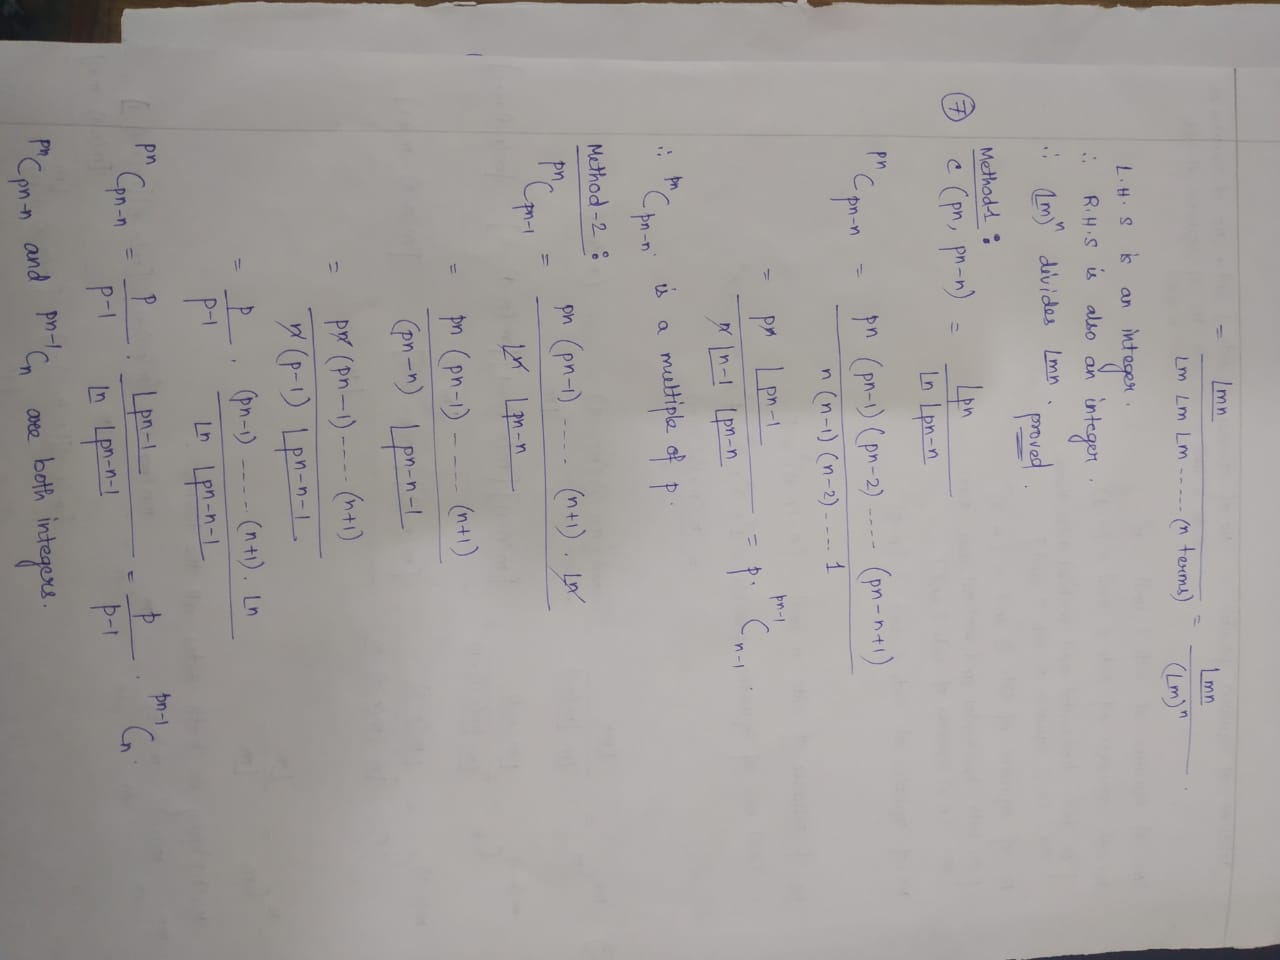 = ⌊mn / ⌊m ⌊m ⌊m ---- (n terms) = ⌊mn / (⌊m)ⁿ .
L.H.S is an integer.
∴ R.H.S is also an integer.
∴ (⌊m)ⁿ divides ⌊mn . proved.
⑦ Method-1 :
C (pn, pn-n) = ⌊pn / ⌊n ⌊pn-n
ᵖⁿC pn-n = pn (pn-1) (pn-2) ---- (pn-n+1) / n (n-1) (n-2) ---- 1
= pn ⌊pn-1 / n ⌊n-1 ⌊pn-n = p. ᵖⁿ⁻¹C n-1 .
∴ ᵖⁿC pn-n. is a multiple of p.
Method-2 :
ᵖⁿC pn-1 = pn (pn-1) ---- (n+1) . ⌊n / ⌊n ⌊pn-n
= pn (pn-1) ---- (n+1) / (pn-n) ⌊pn-n-1
= pn (pn-1) ---- (n+1) / n (p-1) ⌊pn-n-1
= p / p-1 . (pn-1) ---- (n+1) . ⌊n / ⌊n ⌊pn-n-1
ᵖⁿC pn-n = p / p-1 . ⌊pn-1 / ⌊n ⌊pn-n-1 = p / p-1 . ᵖⁿ⁻¹C n.
ᵖⁿC pn-n and ᵖⁿ⁻¹C n are both integers.